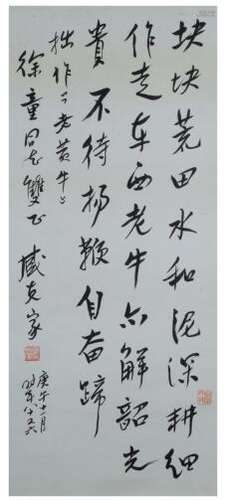 块块荒田水和泥深耕细
作走东西老牛亦解韶光
贵不待扬鞭自奋蹄
拙作《老黄牛》
徐童同志雙正 臧克家
庚午十一月